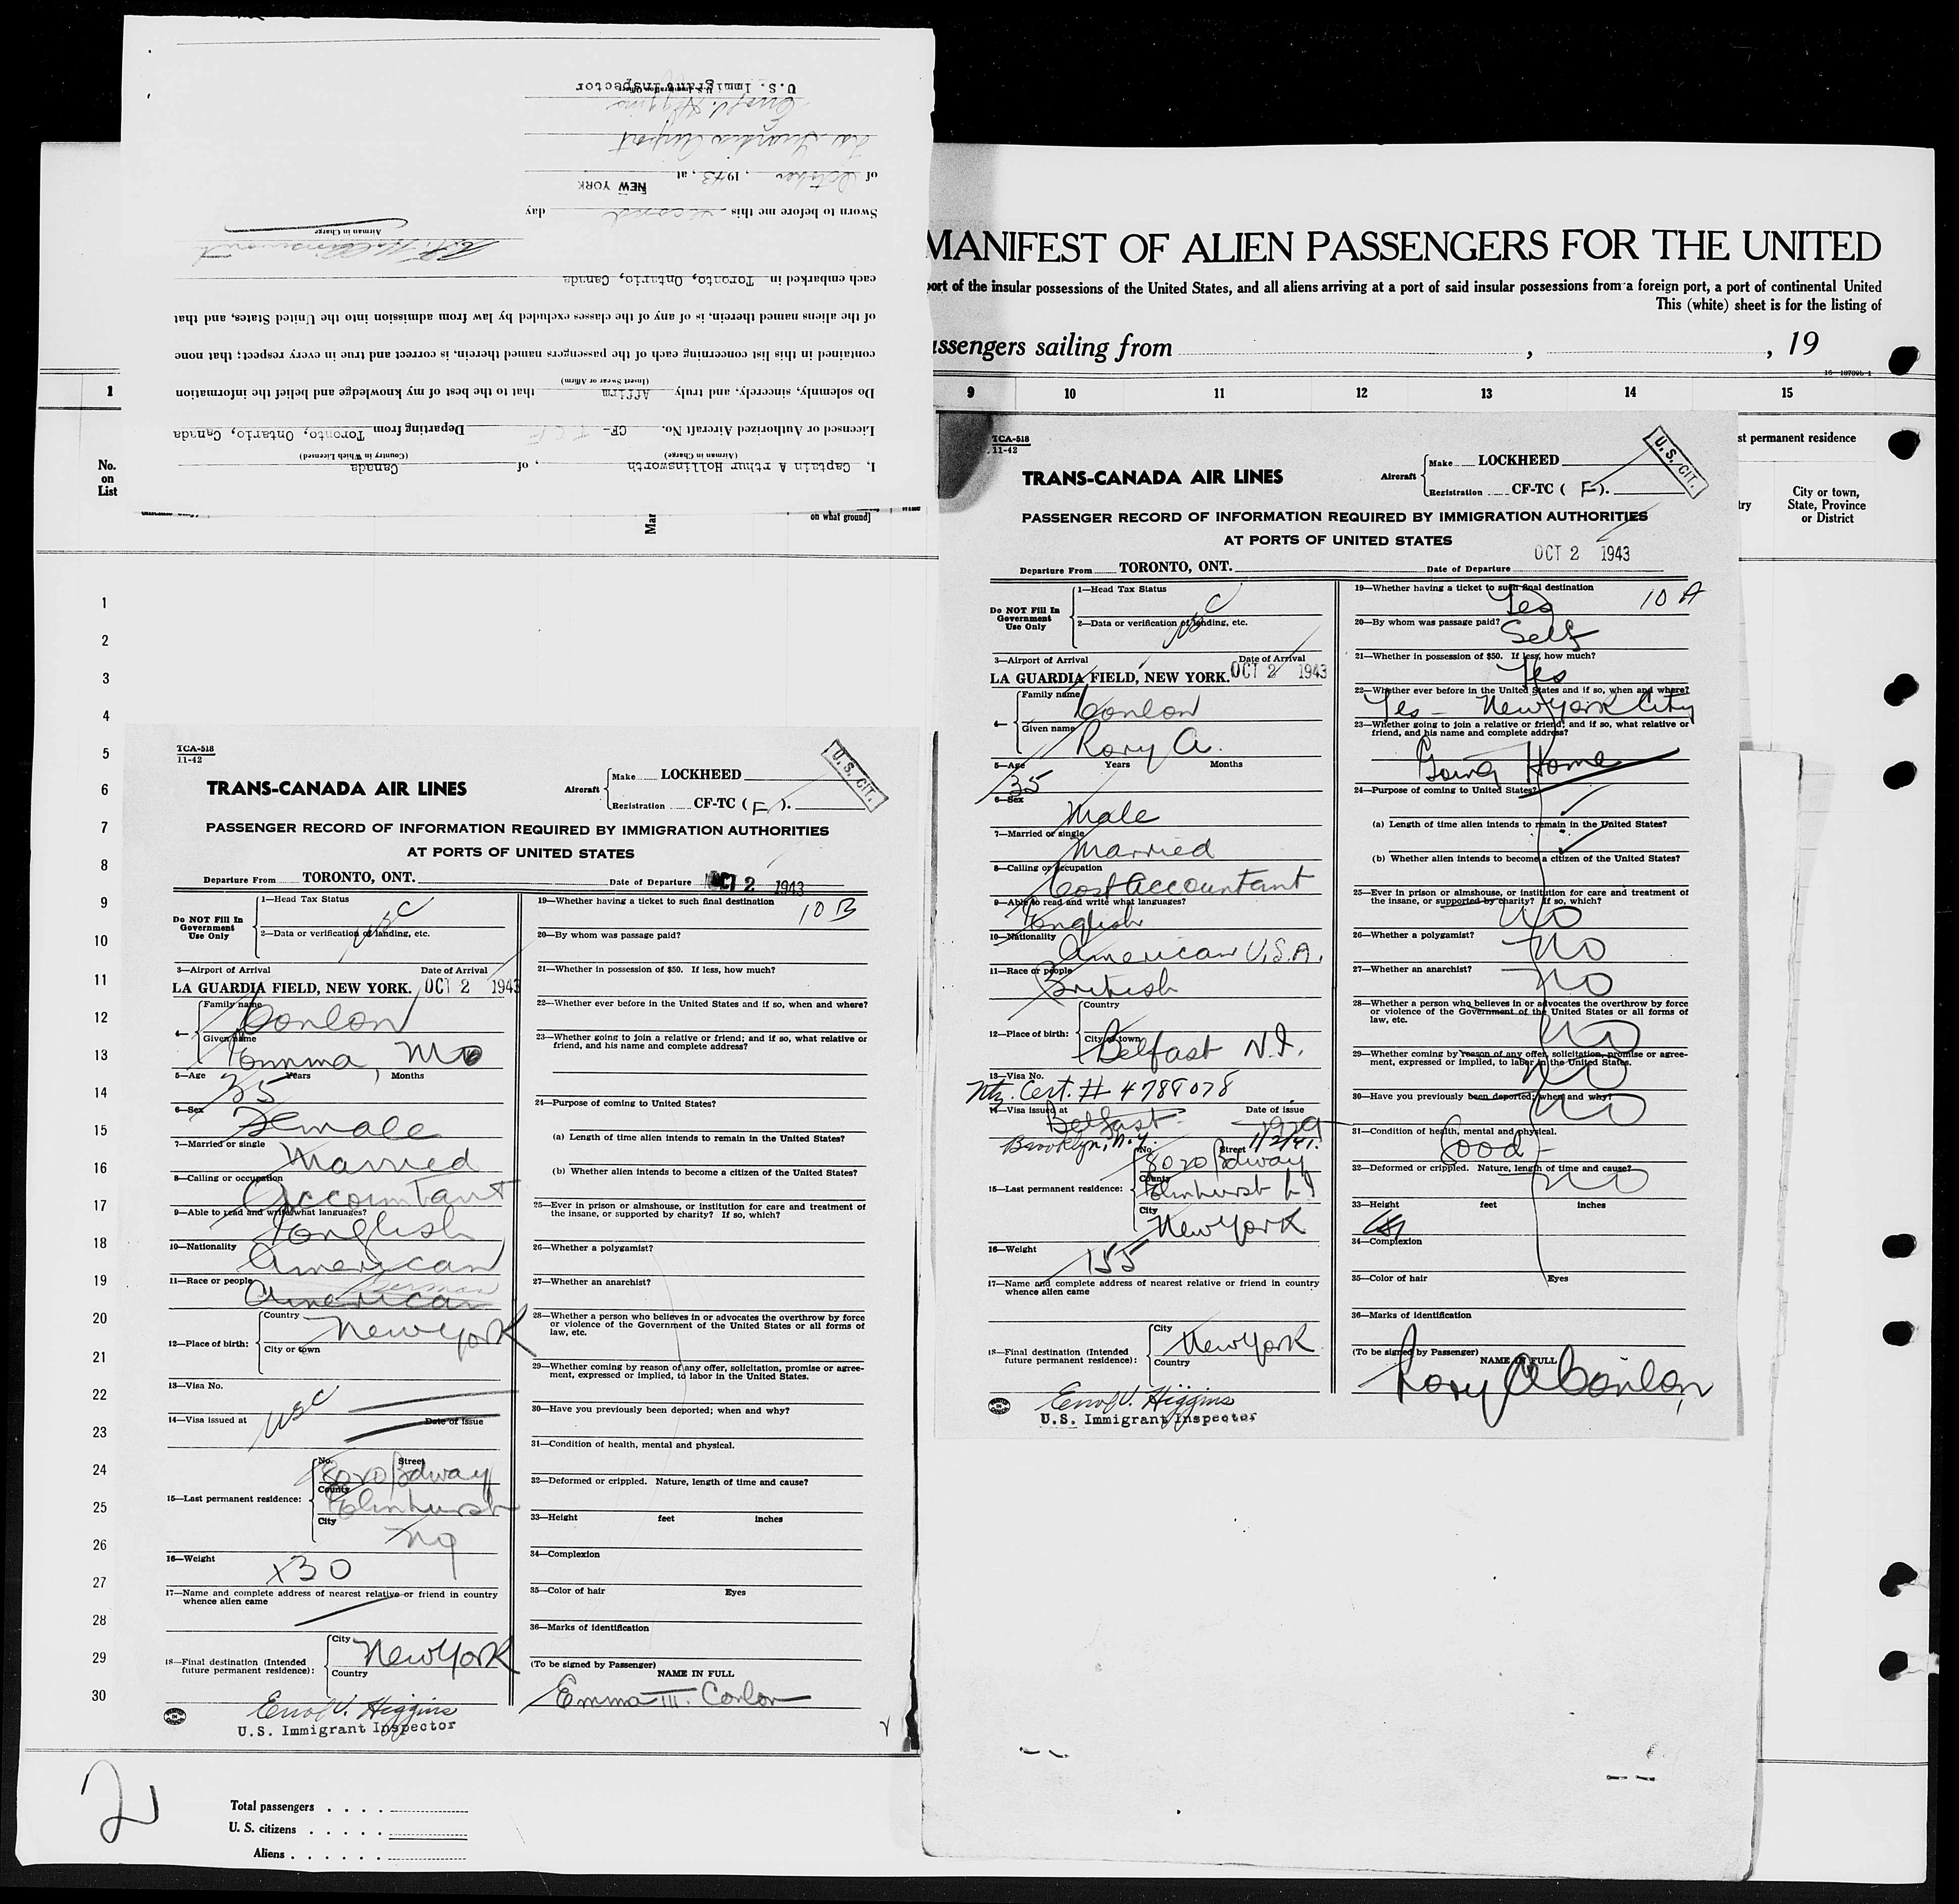 I, Captain A rthur Hollinsworth , of Canada
(Airman in Charge) (Country in Which Licensed)
Licensed or Authorized Aircraft No. CF- T C F Departing from Toronto, Ontario, Canada
Do solemnly, sincerely, and truly Affirm that to the best of my knowledge and belief the information
(Insert Swear or Affirm)
contained in this list concerning each of the passengers named therein, is correct and true in every respect; that none
of the aliens named therein, is of any of the classes excluded by law from admission into the United States, and that
each embarked in Toronto, Ontario, Canada
Airman in Charge
Sworn to before me this second day
of October , 1943, at NEW YORK
La Guardia Airport
Errol V. Higgins
U.S. Immigrant Inspector
MANIFEST OF ALIEN PASSENGERS FOR THE UNITED
port of the insular possessions of the United States, and all aliens arriving at a port of said insular possessions from a foreign port, a port of continental United
This (white) sheet is for the listing of
assengers sailing from , , 19
1 9 10 11 12 13 14 15
No.
on
List
Mar
on what ground]
st permanent residence
try
City or town,
State, Province
or District
1
2
3
4
5
6
7
8
9
10
11
12
13
14
15
16
17
18
19
20
21
22
23
24
25
26
27
28
29
30
TCA-518
11-42
U.S. CIT.
TRANS-CANADA AIR LINES
Aircraft Make LOCKHEED
Registration CF-TC ( F ).
PASSENGER RECORD OF INFORMATION REQUIRED BY IMMIGRATION AUTHORITIES
AT PORTS OF UNITED STATES
Departure From TORONTO, ONT. Date of Departure OCT 2 1943
Do NOT Fill In
Government
Use Only
1—Head Tax Status
USC
2—Data or verification of landing, etc.
3—Airport of Arrival Date of Arrival
LA GUARDIA FIELD, NEW YORK. OCT 2 1943
4— Family name
Conlon
Given name
Emma, M
5—Age Years Months
35
6—Sex
Female
7—Married or single
Married
8—Calling or occupation
Accountant
9—Able to read and write what languages?
English
10—Nationality
American
11—Race or people
German
American
12—Place of birth: Country
New York
City or town
13—Visa No.
USC
14—Visa issued at Date of issue
15—Last permanent residence: No. Street
8020 Bdway
County
Elmhurst
City
NY
16—Weight
130
17—Name and complete address of nearest relative or friend in country
whence alien came
18—Final destination (Intended
future permanent residence): City
New York
Country
Errol V. Higgins
U.S. Immigrant Inspector
19—Whether having a ticket to such final destination
10 B
20—By whom was passage paid?
21—Whether in possession of $50. If less, how much?
22—Whether ever before in the United States and if so, when and where?
23—Whether going to join a relative or friend; and if so, what relative or
friend, and his name and complete address?
24—Purpose of coming to United States?
(a) Length of time alien intends to remain in the United States?
(b) Whether alien intends to become a citizen of the United States?
25—Ever in prison or almshouse, or institution for care and treatment of
the insane, or supported by charity? If so, which?
26—Whether a polygamist?
27—Whether an anarchist?
28—Whether a person who believes in or advocates the overthrow by force
or violence of the Government of the United States or all forms of
law, etc.
29—Whether coming by reason of any offer, solicitation, promise or agree-
ment, expressed or implied, to labor in the United States.
30—Have you previously been deported; when and why?
31—Condition of health, mental and physical.
32—Deformed or crippled. Nature, length of time and cause?
33—Height feet inches
34—Complexion
35—Color of hair Eyes
36—Marks of identification
(To be signed by Passenger)
NAME IN FULL
Emma M. Conlon
TCA-518
11-42
U.S. CIT.
TRANS-CANADA AIR LINES
Aircraft Make LOCKHEED
Registration CF-TC ( F ).
PASSENGER RECORD OF INFORMATION REQUIRED BY IMMIGRATION AUTHORITIES
AT PORTS OF UNITED STATES
Departure From TORONTO, ONT. Date of Departure OCT 2 1943
Do NOT Fill In
Government
Use Only
1—Head Tax Status
USC
2—Data or verification of landing, etc.
3—Airport of Arrival Date of Arrival
LA GUARDIA FIELD, NEW YORK. OCT 2 1943
4— Family name
Conlon
Given name
Rory A.
5—Age Years Months
35
6—Sex
Male
7—Married or single
Married
8—Calling or occupation
Cost Accountant
9—Able to read and write what languages?
English
10—Nationality
American U.S.A.
11—Race or people
British
12—Place of birth: Country
City or town
Belfast N.I.
13—Visa No.
Ntz. Cert. # 4789078
14—Visa issued at Date of issue
Belfast 1929
Brooklyn, N.Y. 1/2/41.
15—Last permanent residence: No. Street
8020 Bdway
County
Elmhurst L I
City
New York
16—Weight
155
17—Name and complete address of nearest relative or friend in country
whence alien came
18—Final destination (Intended
future permanent residence): City
New York
Country
Errol V. Higgins
U.S. Immigrant Inspector
19—Whether having a ticket to such final destination
Yes 10 A
20—By whom was passage paid?
Self
21—Whether in possession of $50. If less, how much?
Yes
22—Whether ever before in the United States and if so, when and where?
Yes - New York City
23—Whether going to join a relative or friend; and if so, what relative or
friend, and his name and complete address?
Going Home
24—Purpose of coming to United States?
(a) Length of time alien intends to remain in the United States?
(b) Whether alien intends to become a citizen of the United States?
25—Ever in prison or almshouse, or institution for care and treatment of
the insane, or supported by charity? If so, which?
No
26—Whether a polygamist?
No
27—Whether an anarchist?
No
28—Whether a person who believes in or advocates the overthrow by force
or violence of the Government of the United States or all forms of
law, etc.
No
29—Whether coming by reason of any offer, solicitation, promise or agree-
ment, expressed or implied, to labor in the United States.
No
30—Have you previously been deported; when and why?
No
31—Condition of health, mental and physical.
Good
32—Deformed or crippled. Nature, length of time and cause?
No
33—Height feet inches
34—Complexion
35—Color of hair Eyes
36—Marks of identification
(To be signed by Passenger)
NAME IN FULL
Rory A Conlon
2
Total passengers
U. S. citizens
Aliens